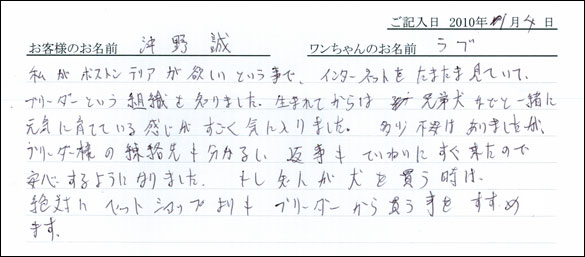 ご記入日 2010年11月4日
お客様のお名前 沖野 誠 ワンちゃんのお名前 ラブ
私がボストンテリアが欲しいという事で、インターネットをたまたま見ていて、
ブリーダーという組織を知りました。生まれてからは 兄弟犬などと一緒に
元気に育てている感じがすごく気に入りました。 不安はありましたが、
ブリーダー様の連絡先も分かるし 返事も ていねいにすぐ来たので
安心するようになりました。 もし知人が犬を買う時は、
絶対に ペットショップよりも ブリーダーから買う事をすすめ
ます。